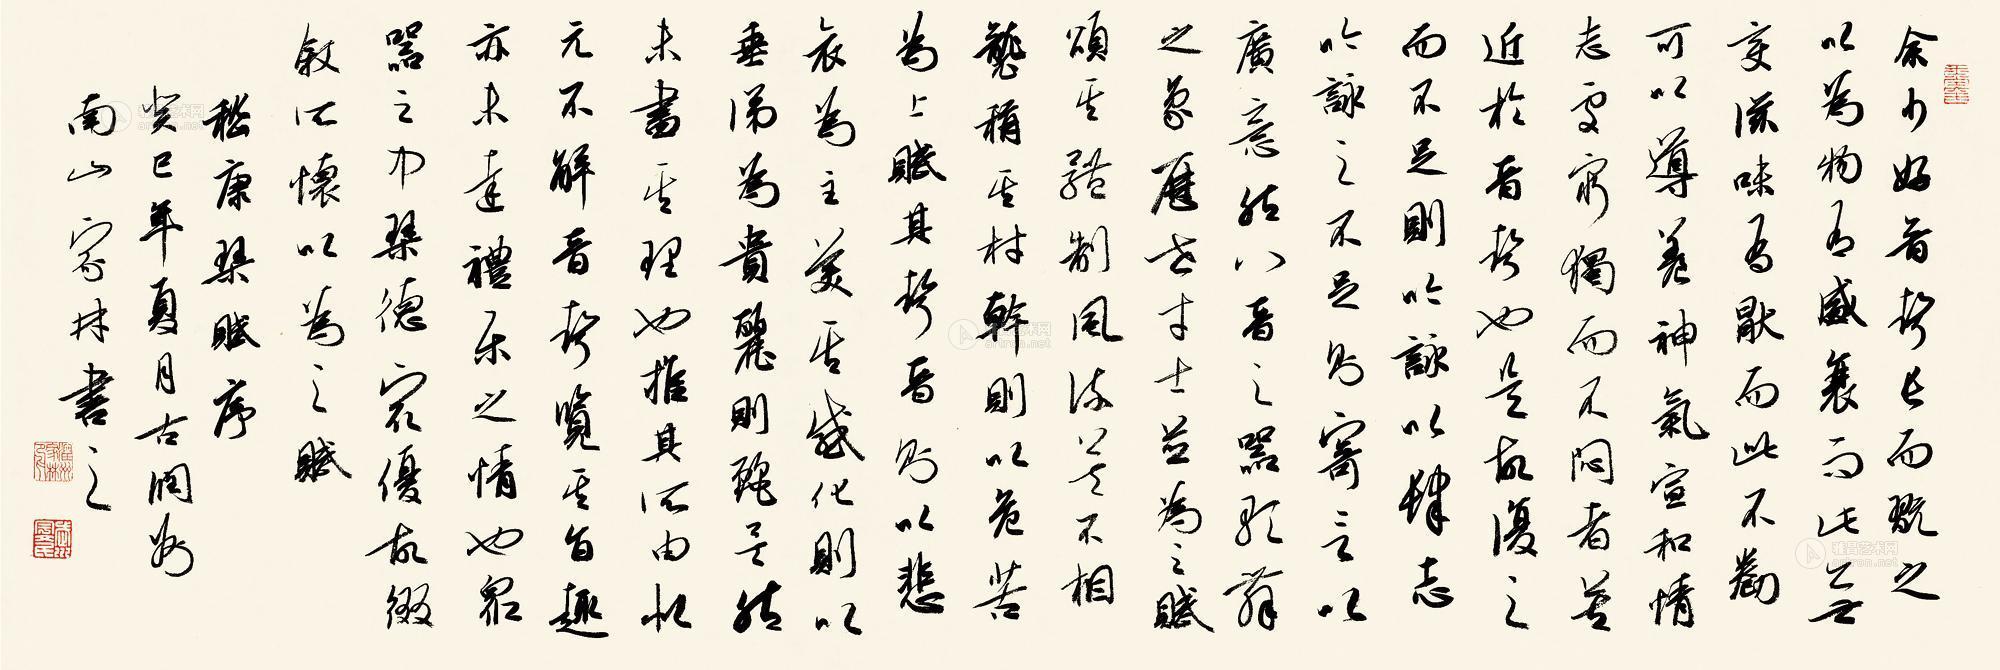 余少好音聲長而翫之
以為物有盛衰而此無
變滋味有猒而此不勌
可以導養神氣宣和情
志處窮獨而不悶者莫
近於音聲也是故復之
而不足則吟詠以肆志
吟詠之不足則寄言以
廣意然八音之器歌舞
之象歷世才士並為之賦
頌其體制風流莫不相
襲稱其材幹則以危苦
為上賦其聲音則以悲
哀為主美其感化則以
垂涕為貴麗則麗矣然
未盡其理也推其所由似
元不解音聲覽其旨趣
亦未達禮樂之情也眾
器之中琴德最優故綴
敘所懷以為之賦
嵇康琴賦序
癸巳年夏月古潤州
南山家林書之
雅昌艺术网
artron.net